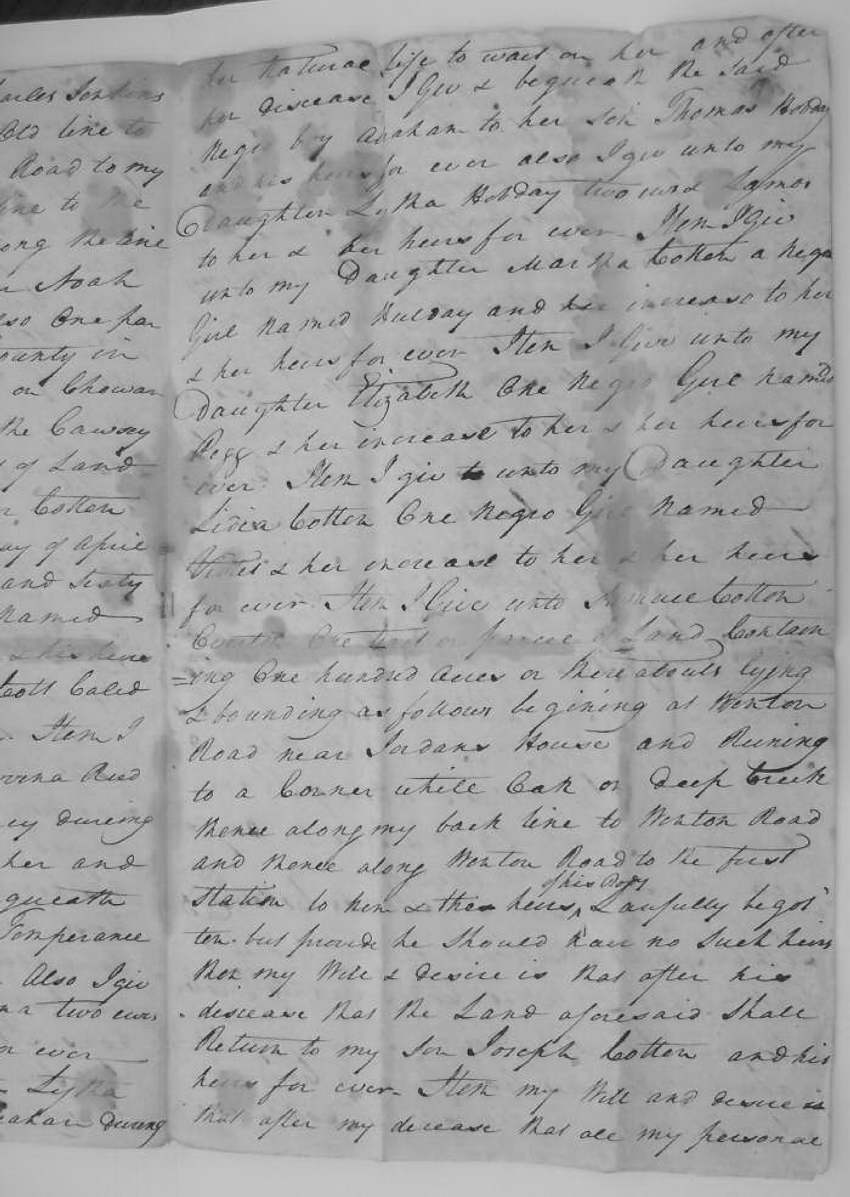 arles Jenkins
Old line to
Road to my
line to the
ong the line
r Noah
lso One par
ounty in
on Chowan
the Cawsey
of Land
r Cotten
ay of April
and Sixty
Named
& his heirs
Cott Caled
Item I
Rud
ey dureing
her and
queath
Temperance
Also I giv
na two ews
or ever
Lytha
raham During
her natural life to wait on her and after
her disease I Giv & bequeath the said
Negro boy Abraham to her Son Thomas Hobday
and his heirs for ever also I giv unto my
Daughter Lytha Hobday two ews & Lamos
to her & her heirs for ever Item I Giv
unto my Daughter Martha Cotten a Negro
Girl Named Hulday and her increase to her
& her heirs for ever Item I Give unto my
Daughter Elizabeth One Negro Girl named
Pegg & her increase to her & her heirs for
ever Item I giv unto my Daughter
Lidia Cotten One Negro Girl Named
& her increase to her & her heirs
for ever Item I Give unto Cotton
One tract or parcel of Land Contain
=ing One hundred Acres or there abouts lying
& bounding as follows begining at Wenton
Road near Jordans House and Runing
to a Corner white Oak on Deep Creek
thence along my back line to Wenton Road
and thence along Wenton Road to the first
of his Body
Station to him & the heirs ^ Laufully begot
ten but provide he should have no such heirs
then my Will & desire is that after his
disease that the Land aforesaid Shall
Return to my Son Joseph Cotton and his
heirs for ever Item my Will and desire is
that after my decease that all my personal